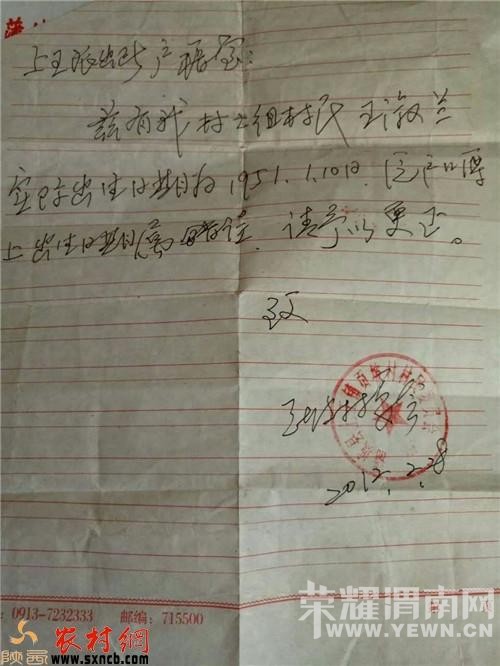 上王派出所户籍室:
兹有我村七组村民王淑兰
实际出生日期为1951.1.10日.后户口簿
上出生日期属错误.请予以更正。
致
2012.2.28
: 0913-7232333 邮编: 715500
陕西
农村網
www.sxncb.com
荣耀渭南网
WWW.YEWN.CN